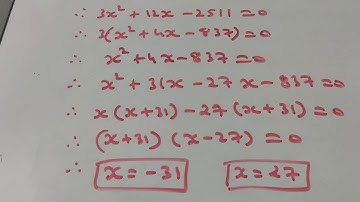 ∴ 3x² + 12x - 2511 = 0
∴ 3(x² + 4x - 837) = 0
∴ x² + 4x - 837 = 0
∴ x² + 31x - 27x - 837 = 0
∴ x(x+31) - 27(x+31) = 0
∴ (x+31) (x-27) = 0
∴ x = -31 x = 27